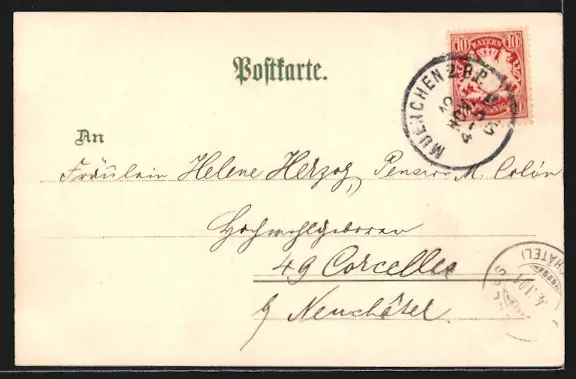 Postkarte.
10 BAYERN 10
MUENCHEN 2.B.P.
An
Fräulein Helene Herzog, Pension M. Colin
Hochwohlgeboren
49 Corcelles
b/ Neuchâtel.
CHATEL)